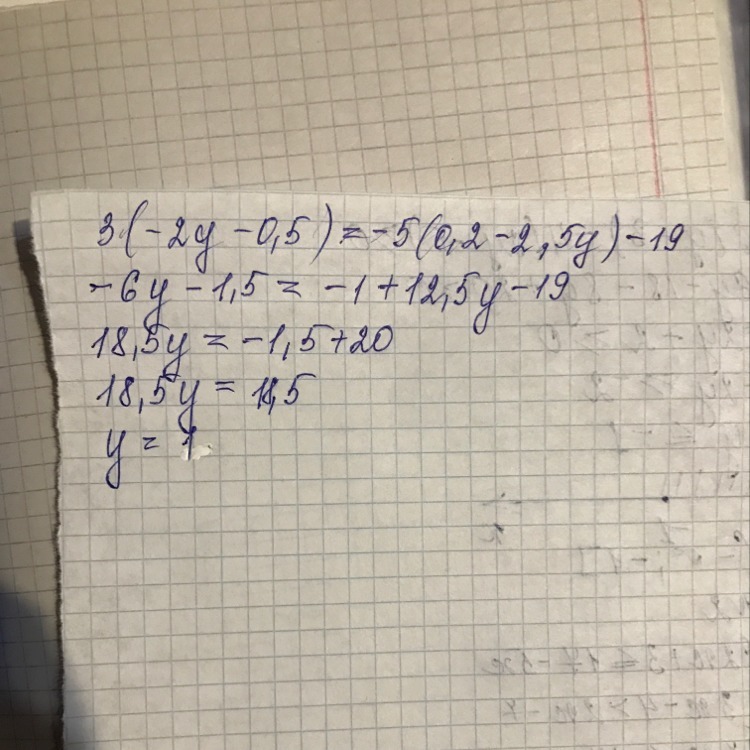 3(-2y-0,5)=-5(0,2-2,5y)-19
-6y-1,5=-1+12,5y-19
18,5y=-1,5+20
18,5y=18,5
y=1